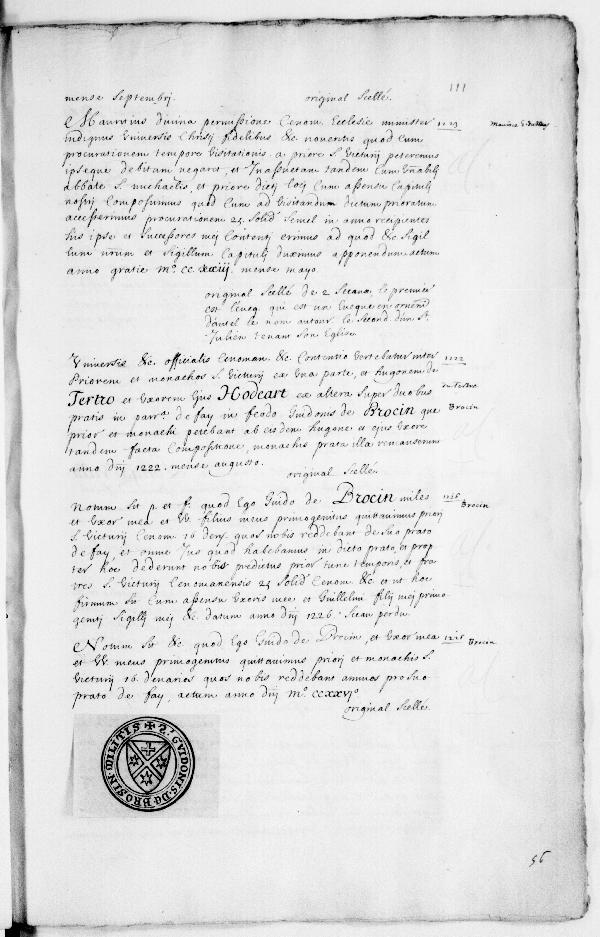 111
mense Septembrj. original Scellé.
Mauricius divina permissione Cenom. Ecclesie minister 1223
indignus Universis Christj fidelibus &c noveritis quod Cum
procurationem tempore Visitationis a priore S. Victurij peteremus
ipseque debitam negaret, et Inassuetam tandem Cum Vnabilj
abbate S. michaelis, et priore dictj locj Cum assensu Capitulj
nostrj Composuimus quod Cum ad Visitandum dictum prioratum
accesserimus procurationem 25 Solid Semel in anno recipientes
his ipse et Successores mej Contentj erimus ad quod &c Sigil
lum nrum et Sigillum Capitulj duximus apponendum actum
anno gratie M.º CC. xxiij. mense mayo.
original Scellé de 2 Sceaux le premier
est l'eucq. qui est un Eveque en ornem
d'autel le nom autour le Second d'un St.
Julien tenant Son Eglise
Universis &c. officialis Cenoman. &c. Contentio Vertebatur inter 1222
Priorem et monachos S. Victurij ex Una parte, et hugonem de
Tertro et Uxorem Ejus Hodeart ex altera Super duobus du Tertre
pratis in parr.ª de fay in feodo Guidonis de Brocin que Brocin
prior et monachi petebant ab eisdem hugone et ejus Uxore
tandem facta Compositione, monachis prata illa remanserunt
anno dnj 1222. mense augusto.
original Scellé.
Notum Sit p. et f. quod Ego Guido de Brocin miles 1226 Brocin
et Uxor mea et W. filius meus primogenitus quittavimus priorj
S. Victurij Cenom. 16 den. quos nobis reddebant de suo prato
de fay, et omne Jus quod habebamus in dicto prato, et prop
ter hoc dederunt nobis predictus prior tunc temporis, et fra
tres S. Victurij Cenomanensis 25 Solid Cenom. &c. et ut hoc
firmum Sit Cum assensu Uxoris mee et Guillelmi filij mej primo
genitj Sigillj mej &c. datum anno dnj 1226. Sceau perdu
Notum Sit &c. quod Ego Guido de Brocin, et Uxor mea 1226 Brocin
et W. meus primogenitus quittavimus priorj et monachis S.
Victurij 16. denarios quos nobis reddebant annuos pro suo
prato de fay, actum anno dnj M.º CCXXVIº
original Scellé.
S. GVIDONIS. DE BROSIN MILITIS
56